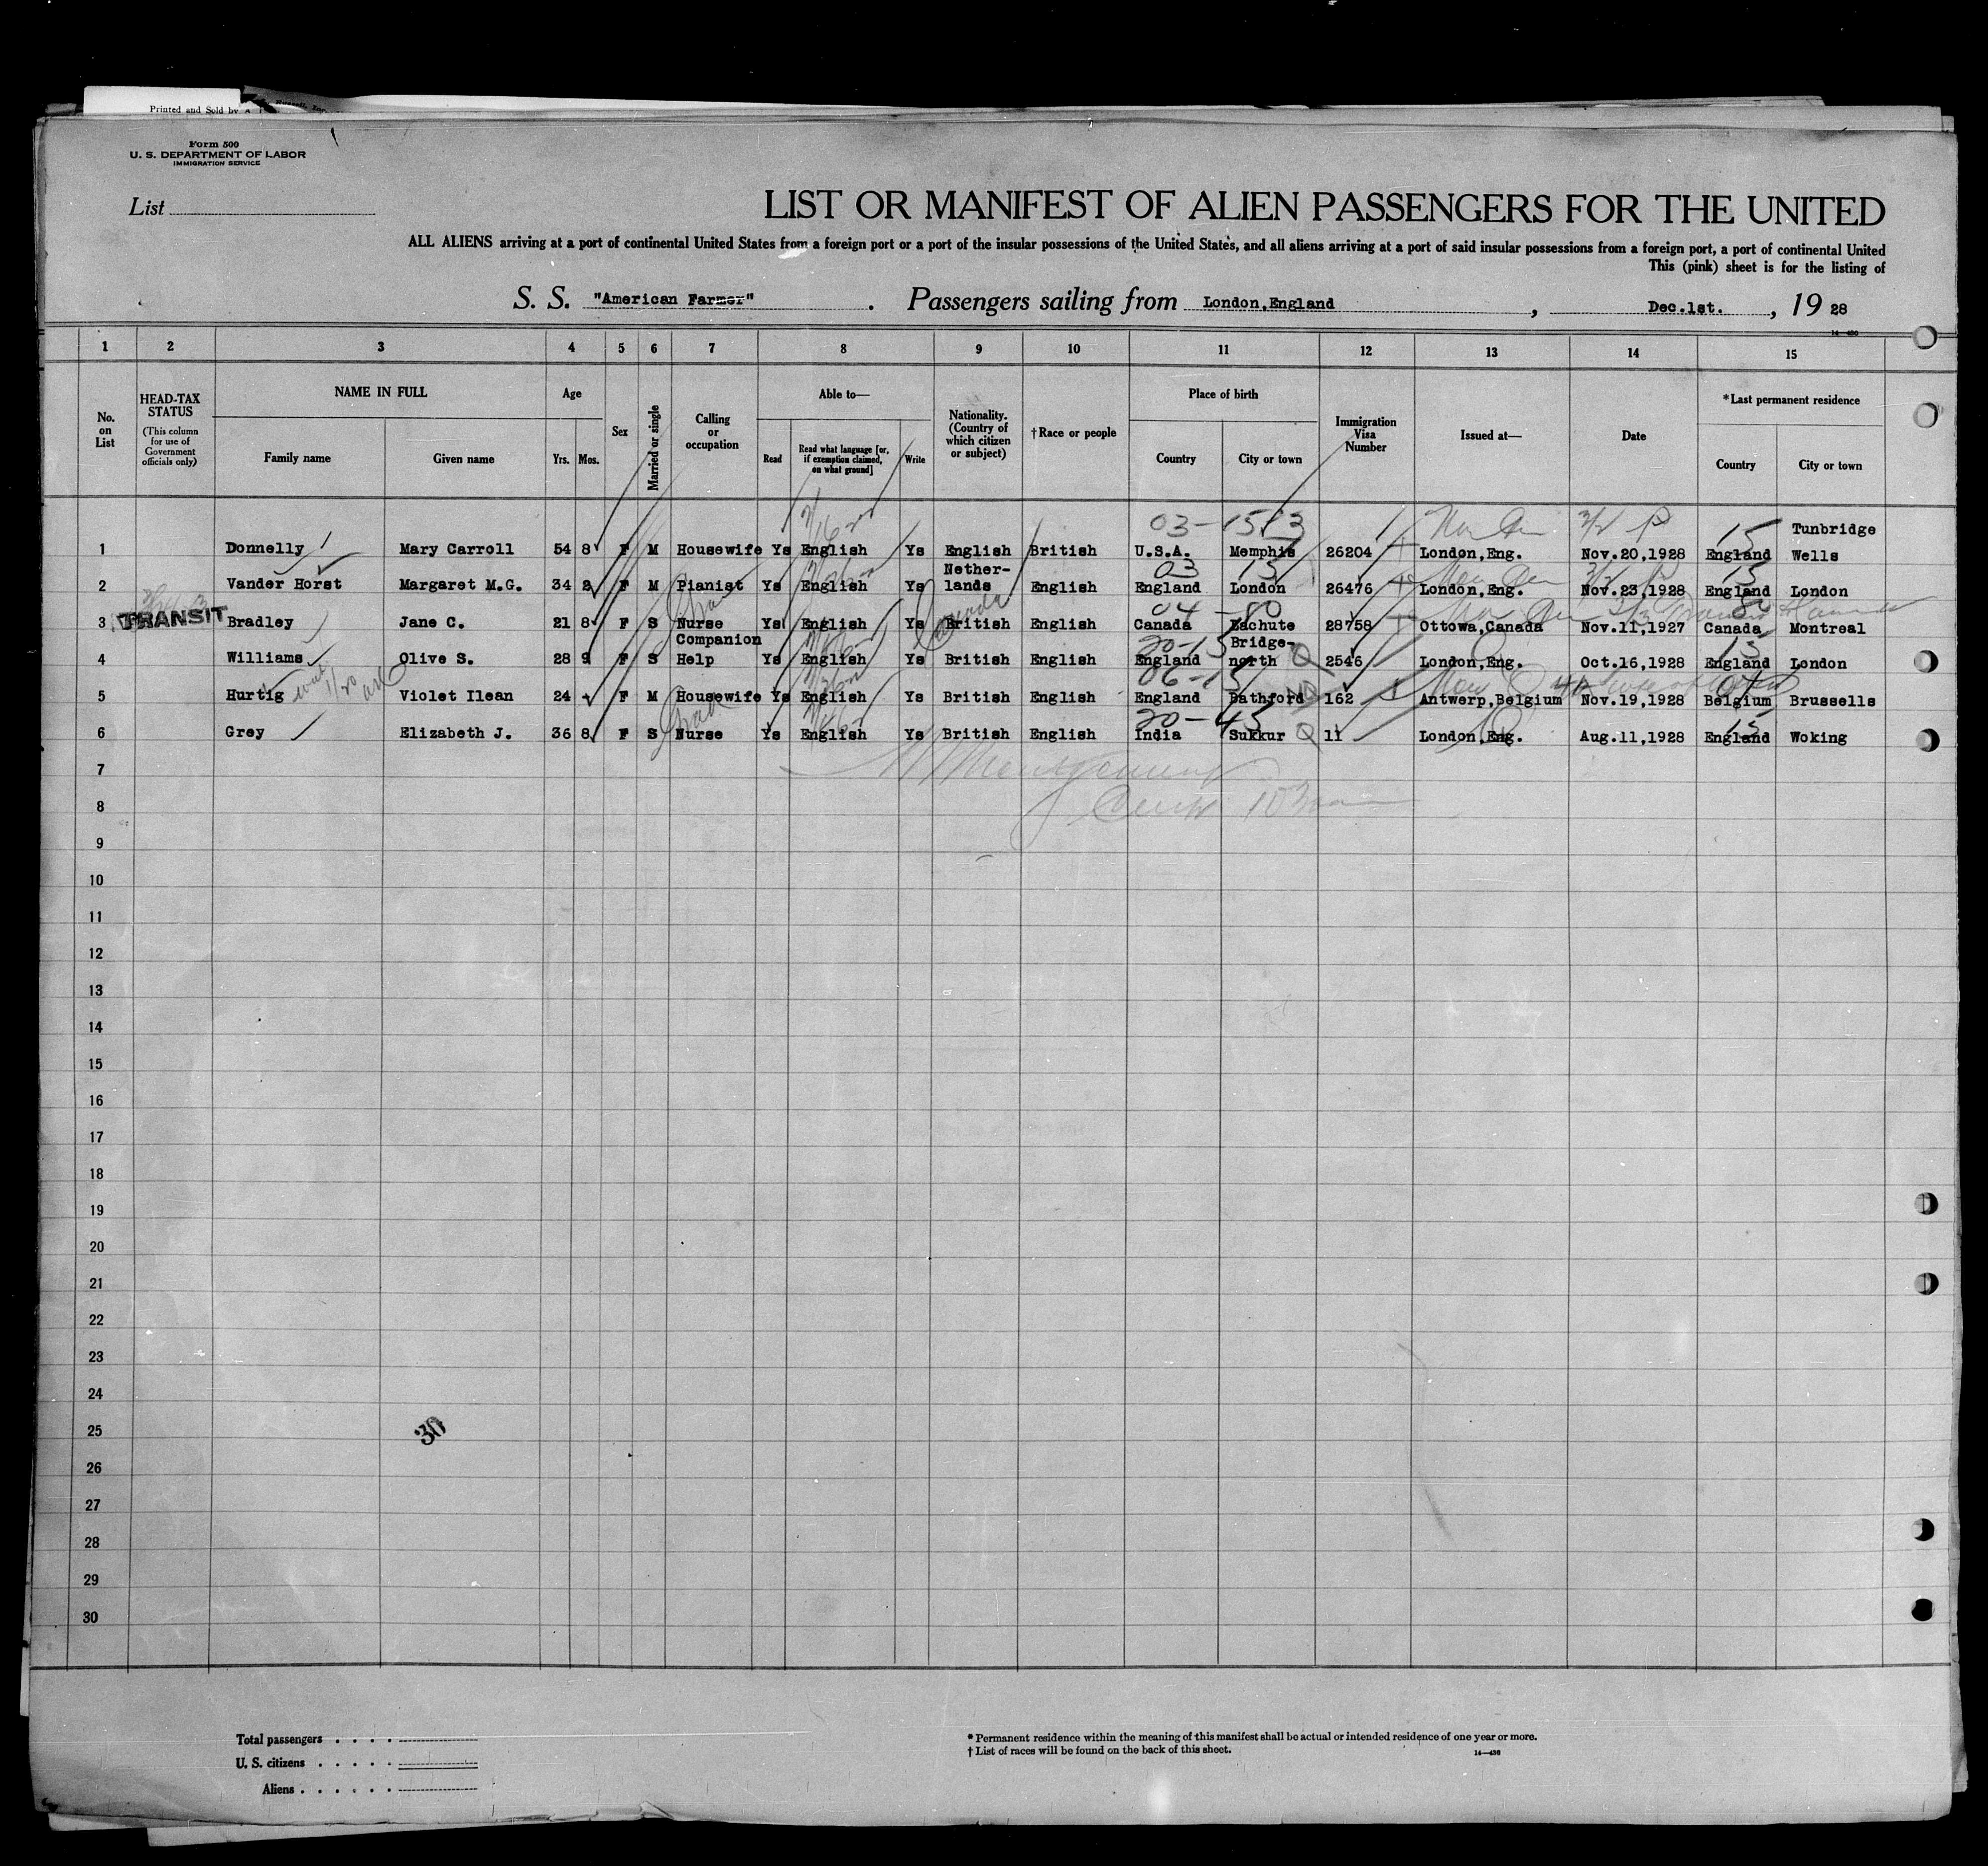 Printed and Sold by
Form 500
U. S. DEPARTMENT OF LABOR
IMMIGRATION SERVICE
List
LIST OR MANIFEST OF ALIEN PASSENGERS FOR THE UNITED
ALL ALIENS arriving at a port of continental United States from a foreign port or a port of the insular possessions of the United States, and all aliens arriving at a port of said insular possessions from a foreign port, a port of continental United
This (pink) sheet is for the listing of
S. S. "American Farmer" . Passengers sailing from London,England , Dec.1st. , 19 28
1 2 3 4 5 6 7 8 9 10 11 12 13 14 15
No. on List
HEAD-TAX STATUS
(This column for use of Government officials only)
NAME IN FULL
Family name Given name
Age
Yrs. Mos.
Sex
Married or single
Calling or occupation
Able to—
Read Read what language [or, if exemption claimed, on what ground] Write
Nationality. (Country of which citizen or subject)
†Race or people
Place of birth
Country City or town
Immigration Visa Number
Issued at—
Date
*Last permanent residence
Country City or town
03-15 13 15
1 Donnelly Mary Carroll 54 8 F M Housewife Ys English Ys English British U.S.A. Memphis 26204 London,Eng. Nov.20,1928 England Tunbridge Wells
03 15 15
2 Vander Horst Margaret M.G. 34 2 F M Pianist Ys English Ys Nether- lands English England London 26476 London,Eng. Nov.23,1928 England London
Canada 04-80
TRANSIT
3 Bradley Jane C. 21 8 F S Nurse Ys English Ys British English Canada Lachute 28758 Ottowa,Canada Nov.11,1927 Canada Montreal
20-15 15
4 Williams Olive S. 28 9 F S Companion Help Ys English Ys British English England Bridge- north Q 2546 London,Eng. Oct.16,1928 England London
06-15
5 Hurtig Violet Ilean 24 F M Housewife Ys English Ys British English England Bathford 162 Antwerp,Belgium Nov.19,1928 Belgium Brussells
20-45 15
6 Grey Elizabeth J. 36 8 F S Nurse Ys English Ys British English India Sukkur Q 11 London,Eng. Aug.11,1928 England Woking
7
8
9
10
11
12
13
14
15
16
17
18
19
20
21
22
23
24
25
30
26
27
28
29
30
Total passengers
U. S. citizens
Aliens
* Permanent residence within the meaning of this manifest shall be actual or intended residence of one year or more.
† List of races will be found on the back of this sheet.